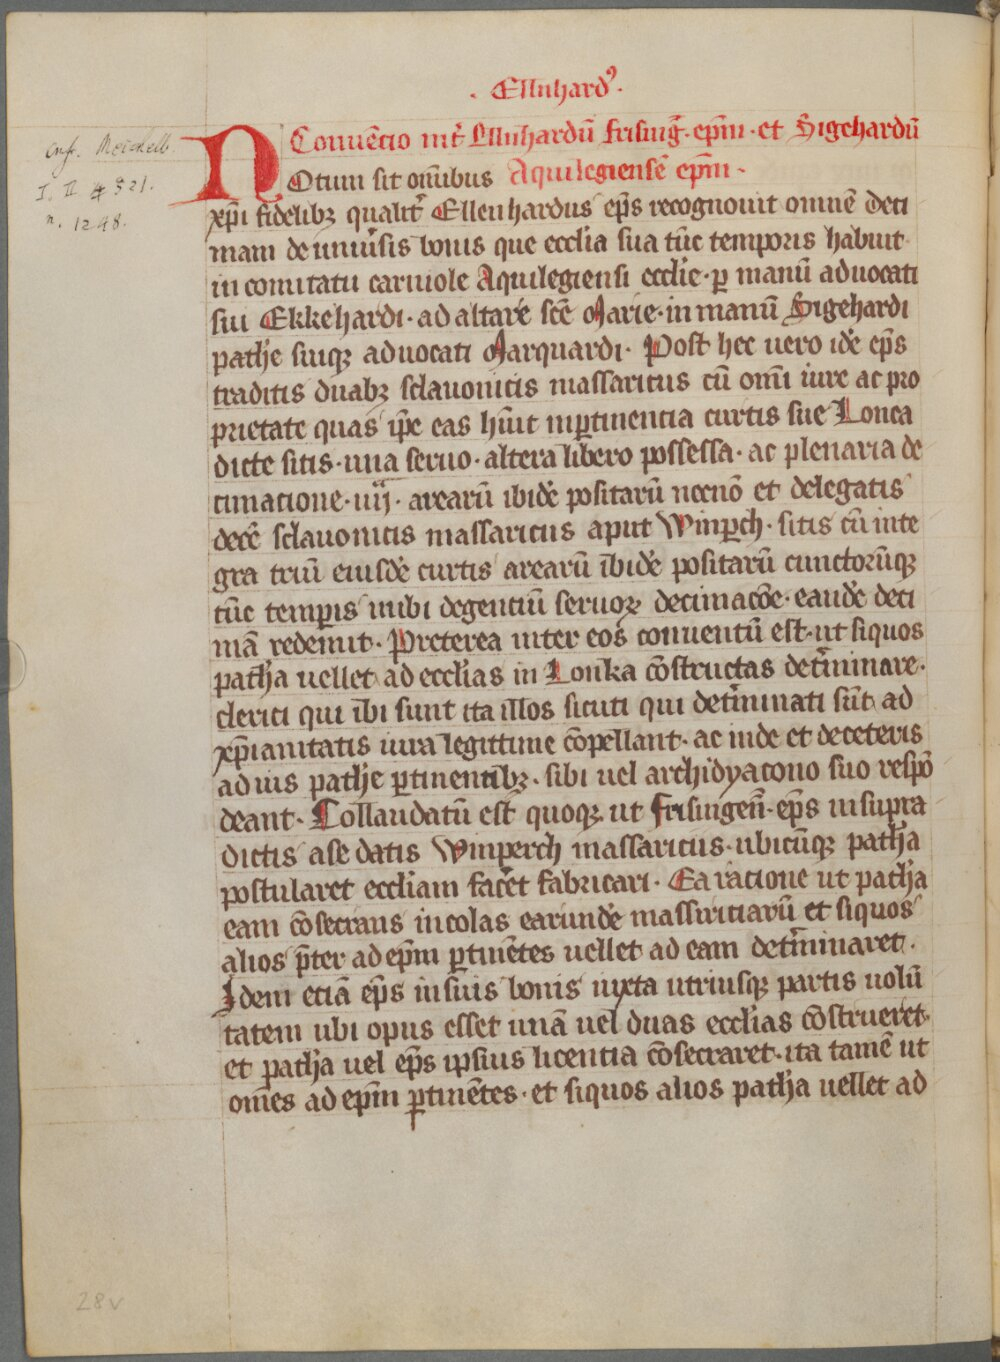 · Ellnhardꝰ ·
Conuēcio int̄ Ellnhardū frising̅ · ep̄m · et Sigehardū
Aquilegiensē ep̄m ·
Notum sit om̄ibus
xp̄i fidelibꝫ qualit̄ Ellenhardus ep̄s recognouit omnē deci
mam de uniu̓sis bonis que eccl̄ia sua tūc temporis habuit
in comitatu carniole Aquilegiensi eccl̄ie · ꝑ manū aduocati
sui Ekkehardi · ad altare sc̄e Marie · in manū Sigehardi
pat̄he suiqꝫ aduocati Marquardi · Post hec uero idē ep̄s
traditis duabꝫ sclauonicis massaricus cū om̄i iure ac pro
prietate quas ip̄e eas hūit in ꝑtinencia curtis sue Lonca
dicte sitis · una seruo · altera libero possessa · ac plenaria de
cimacione · iiij · arearū ibidē positarū necnō et delegatis
decē sclauonicis massaricus aput Winꝑch · sitis cū inte
gra triū eiusdē curtis arearū ibidē positarū cunctorūqꝫ
tūc temꝑis inibi degentiū seruoꝝ decimac̄oe · eandē deci
mā redemit · Preterea inter eos conuentū est · ut siquos
pat̄ha uellet ad eccl̄ias in Lonka cōstructas det̓minare ·
clerici qui ibi sunt ita illos sicuti qui det̓minati sūt ad
xp̄ianitatis iura legittime cōpellant · ac inde et deceteris
ad ius pat̄he ꝑtinentibꝫ · sibi uel archidyacono suo respō
deant · Collaudatū est quoqꝫ ut frisingen̄ · ep̄s in supra
dictis a se datis Winperch massaricus · ubicūqꝫ pat̄ha
postularet eccl̄iam fac̓et fabricari · Ea racione ut pat̄ha
eam cōsecrans incolas earundē massariciarū et siquos
alios p̄ter ad ep̄m ꝑtinētes uellet ad eam det̓minaret ·
Idem etiā ep̄s in suis bonis iuxta utriusqꝫ partis uolū
tatem ubi opus esset unā uel duas eccl̄ias cōstrueret ·
et pat̄ha uel ep̄s ipsius licentia cōsecraret · ita tamē ut
om̄es ad ep̄m ꝑtinētes · et siquos alios pat̄ha uellet ad
Meichelb.
n. 1248.
28v